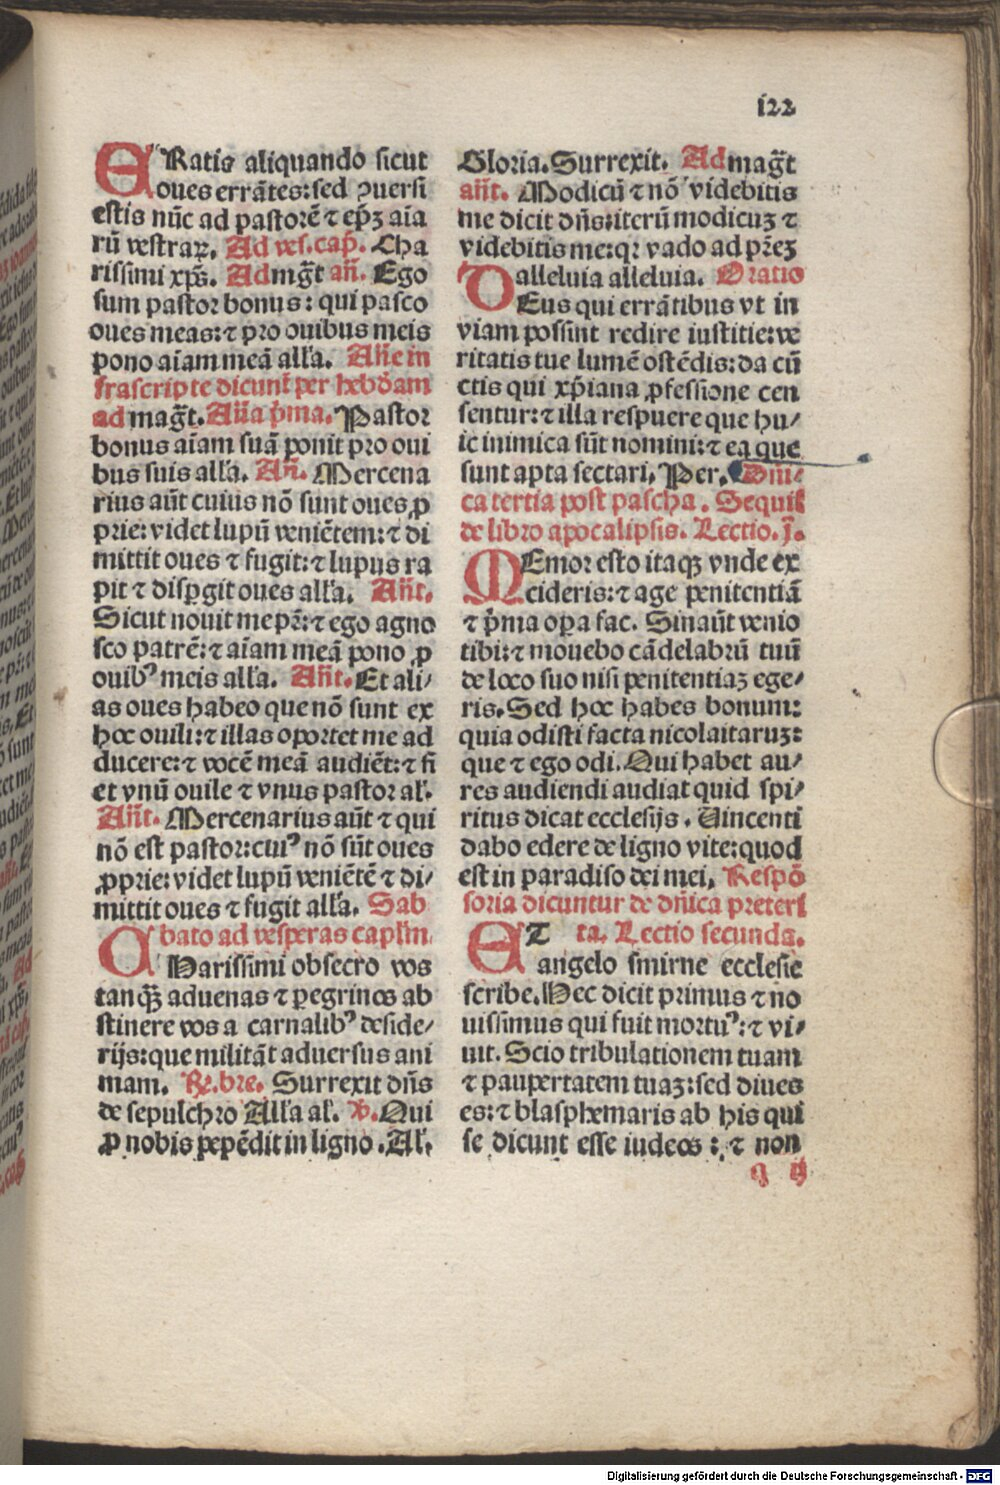 i22
ERatis aliquando sicut
oues errãtes: sed ꝯuersi
estis nũc ad pastorẽ ⁊ ep̃ꝫ aĩa
rũ vestraꝝ. Ad ves. cap̃. Cha
rissimi xp̃s. Ad mg̃t añ. Ego
sum pastor bonus: qui pasco
oues meas: ⁊ pro ouibus meis
pono aĩam meã all'a. Añe in
frascripte dicunt̃ per hebd̃am
ad mag̃t. Añа p̃ma. Pastor
bonus aĩam suã ponit pro oui
bus suis all'a. Añ. Mercena
rius aũt cuius nõ sunt oues ꝓ
prie: videt lupũ veniẽtem: ⁊ di
mittit oues ⁊ fugit: ⁊ lupus ra
pit ⁊ disp̱git oues all'a. Añt.
Sicut nouit me pr̃: ⁊ ego agno
sco patrẽ: ⁊ aĩam meã pono ꝓ
ouibꝰ meis all'a. Añt. Et ali/
as oues habeo que nõ sunt ex
hoc ouili: ⁊ illas oportet me ad
ducere: ⁊ vocẽ meã audiẽt: ⁊ fi̾
et vnũ ouile ⁊ vnus pastor al'.
Añt. Mercenarius aũt ⁊ qui
nõ est pastor: cuiꝰ nõ sũt oues
ꝓprie: videt lupũ veniẽtẽ ⁊ di/
mittit oues ⁊ fugit all'a. Sab
bato ad vesperas capl'm.
CHarissimi obsecro vos
tanqꝫ̃ aduenas ⁊ p̱egrinos ab
stinere vos a carnalibꝰ deside/
rijs: que militãt aduersus ani
mam. R̷. bre. Surrexit dñs
de sepulchro All'a al'. V̷. Qui
ꝓ nobis pepẽdit in ligno. Al'.
Gloria. Surrexit. Ad mag̃t
añt. Modicũ ⁊ nõ videbitis
me dicit dñs: iterũ modicuꝫ ⁊
videbitis me: qꝛ vado ad pr̃eꝫ
alleluia alleluia. Oratio
DEus qui errãtibus vt in
viam possint redire iustitie: ve
ritatis tue lumẽ ostẽdis: da cũ
ctis qui xp̃iana ꝓfessione cen
sentur: ⁊ illa respuere que hu/
ic inimica sũt nomini: ⁊ ea que
sunt apta sectari. Per. Dñi/
ca tertia post pascha. Sequit̃
de libro apocalipsis. Lectio. j.
MEmor esto itaqꝫ vnde ex
cideris: ⁊ age penitentiã
⁊ p̃ma op̱a fac. Sinaũt venio
tibi: ⁊ mouebo cãdelabrũ tuũ
de loco suo nisi penitentiaꝫ ege/
ris. Sed hoc habes bonum:
quia odisti facta nicolaitaruꝫ:
que ⁊ ego odi. Qui habet au/
res audiendi audiat quid spi/
ritus dicat ecclesijs. Uincenti
dabo edere de ligno vite: quod
est in paradiso dei mei. Respõ
soria dicuntur de dñica preteri
ta. Lectio secunda.
ET
angelo smirne ecclesie
scribe. Hec dicit primus ⁊ no
uissimus qui fuit mortuꝰ: ⁊ vi/
uit. Scio tribulationem tuam
⁊ paupertatem tuaꝫ: sed diues
es: ⁊ blasphemaris ab his qui
se dicunt esse iudeos: ⁊ non
Digitalisierung gefördert durch die Deutsche Forschungsgemeinschaft - DFG